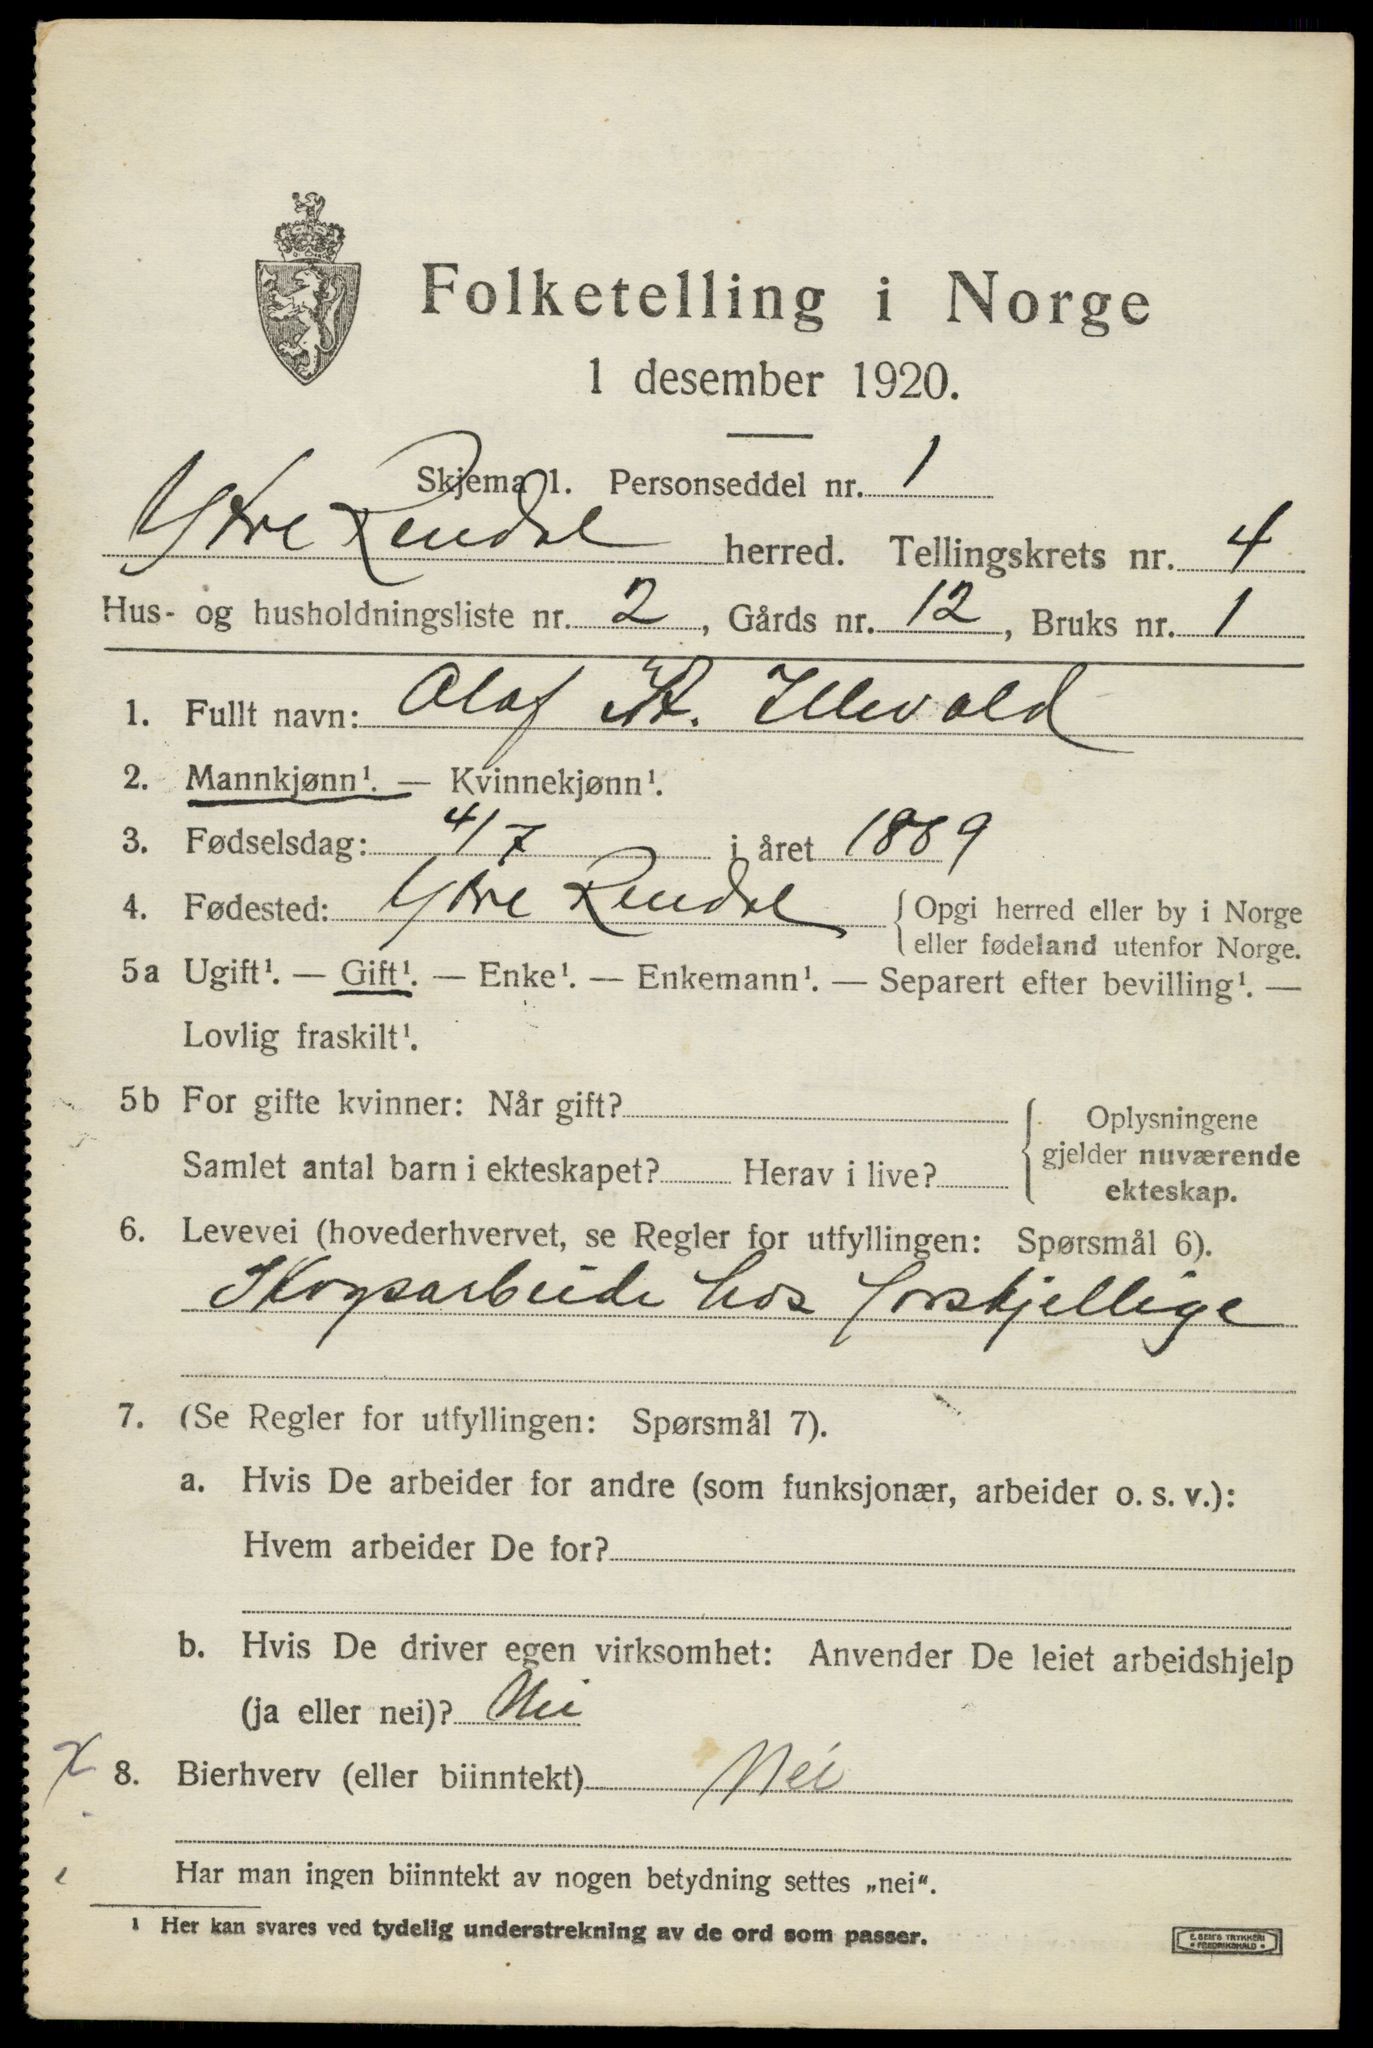 Folketelling i Norge
1 desember 1920.
Skjema 1. Personseddel nr. 1
Ytre Rendal herred. Tellingskrets nr. 4
Hus- og husholdningsliste nr. 2, Gårds nr. 12, Bruks nr. 1
1. Fullt navn: Olaf Illevold
2. Mannkjønn¹. — Kvinnekjønn¹.
3. Fødselsdag: 4/7 i året 1889
4. Fødested: Ytre Rendal {Opgi herred eller by i Norge
eller fødeland utenfor Norge.
5a Ugift¹. — Gift¹. — Enke¹. — Enkemann¹. — Separert efter bevilling¹. —
Lovlig fraskilt¹.
5b For gifte kvinner: Når gift? Oplysningene
gjelder nuværende
Samlet antal barn i ekteskapet? Herav i live?
ekteskap.
6. Levevei (hovederhvervet, se Regler for utfyllingen: Spørsmål 6).
Skogsarbeide hos forskjellige
7. (Se Regler for utfyllingen: Spørsmål 7).
a. Hvis De arbeider for andre (som funksjonær, arbeider o. s. v.):
Hvem arbeider De for?
b. Hvis De driver egen virksomhet: Anvender De leiet arbeidshjelp
(ja eller nei)? Nei
x 8. Bierhverv (eller biinntekt) Nei
Har man ingen biinntekt av nogen betydning settes „nei“.
¹ Her kan svares ved tydelig understrekning av de ord som passer.
E. SEM'S TRYKKERI
• FREDRIKSHALD •